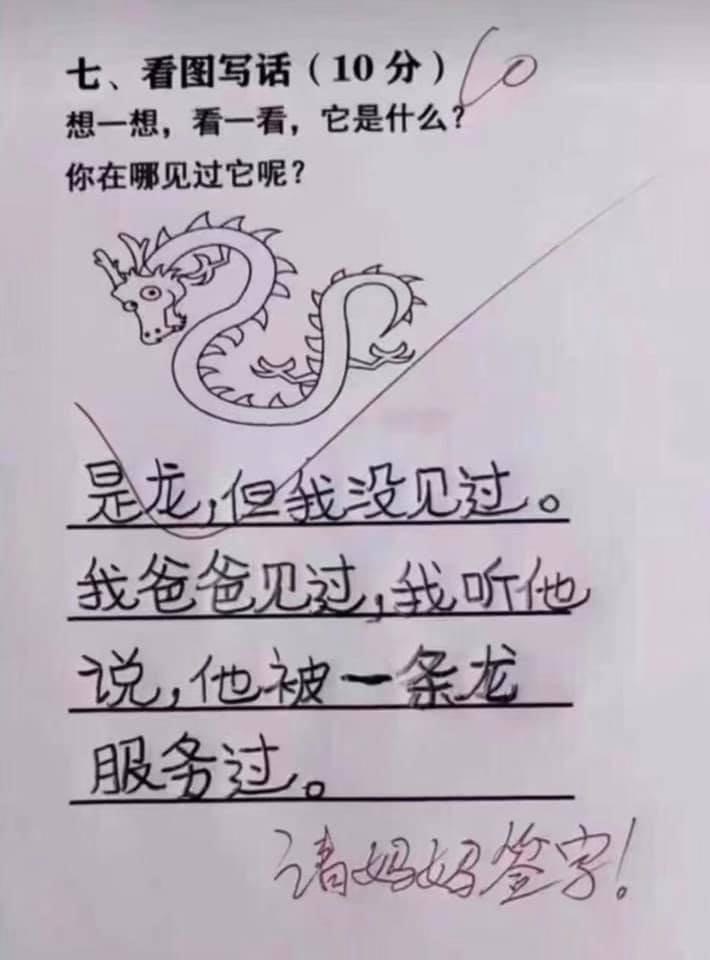 七、看图写话（10分）
10
想一想，看一看，它是什么？
你在哪见过它呢？
是龙，但我没见过。
我爸爸见过，我听他
说，他被一条龙
服务过。
请妈妈签字！